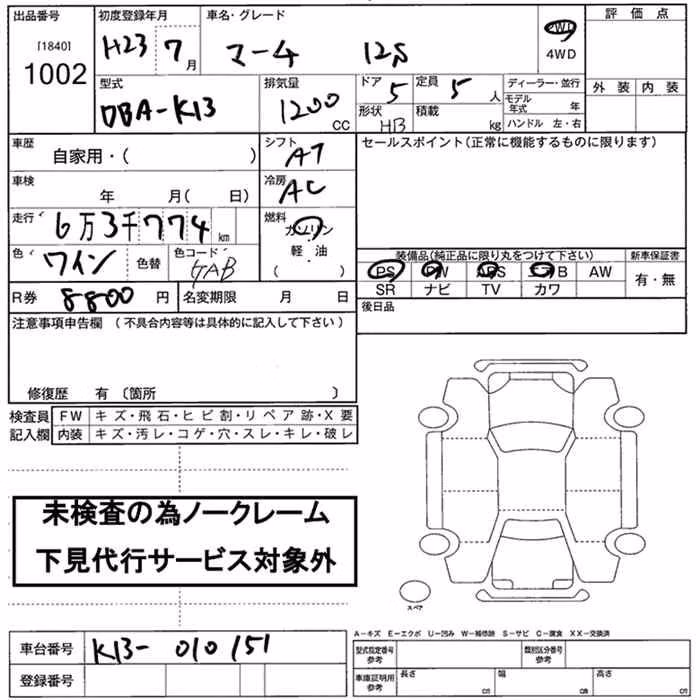 出品番号 初度登録年月 車名・グレード 評価点
[1840] H23 7月 マーチ 12S 2WD
1002 4WD
型式 排気量 ドア 5 定員 5人 ディーラー・並行 外装 内装
DBA-K13 1200CC 形状 HB 積載 kg モデル年式 年
ハンドル 左・右
車歴 自家用・( ) シフト AT セールスポイント(正常に機能するものに限ります)
車検 年 月( 日) 冷房 AC
走行 6万3千774km 燃料 ガソリン
軽油
( )
色 ワイン 色替 色コード 装備品(純正品に限り丸をつけて下さい) 新車保証書
PS PW ABS エアB AW 有・無
SR ナビ TV カワ
R券 8800円 名変期限 月 日 後日品
注意事項申告欄 (不具合内容等は具体的に記入して下さい)
修復歴 有 〔箇所 〕
検査員 FW キズ・飛石・ヒビ割・リペア跡・X要
記入欄 内装 キズ・汚レ・コゲ・穴・スレ・キレ・破レ
未検査の為ノークレーム
下見代行サービス対象外
スペア
A-キズ E-エクボ U-凹み W-補修跡 S-サビ C-腐食 XX-交換済
車台番号 K13-010151 型式指定番号 参考 類別区分番号 参考
登録番号 車庫証明用 参考 長さ cm 幅 cm 高さ cm